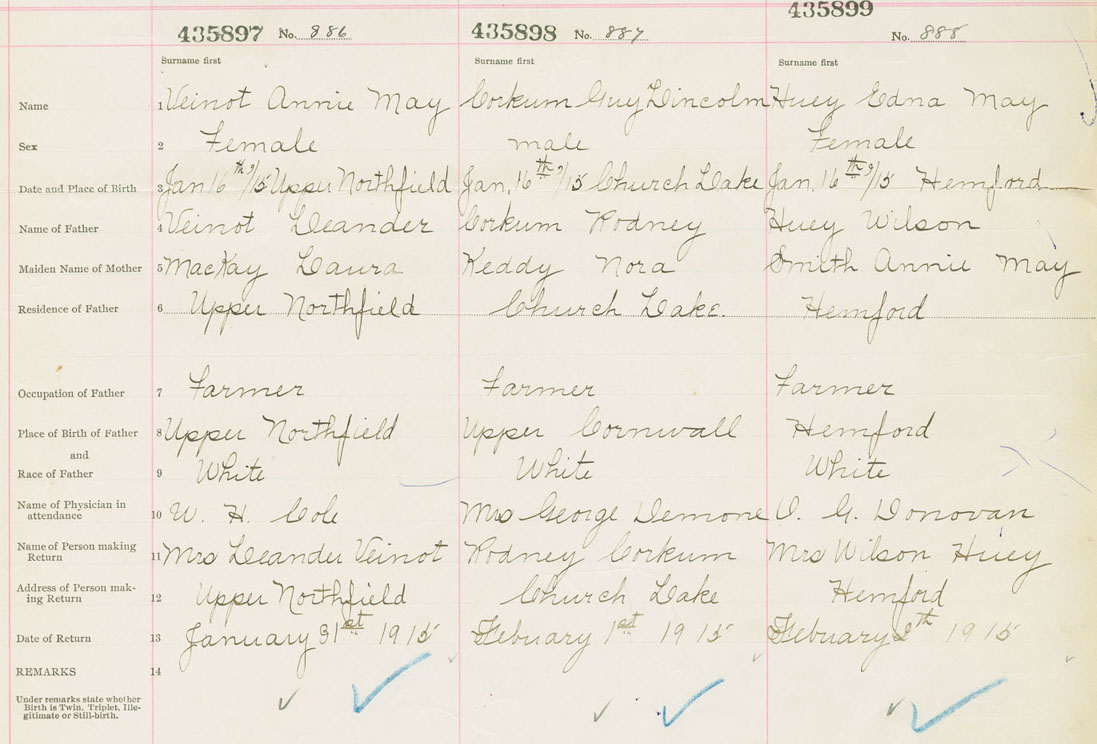 435897 No. 886 435898 No. 887 435899 No. 888
Surname first Surname first Surname first
Name 1 Veinot Annie May Corkum Guy Lincolm Huey Edna May
Sex 2 Female male Female
Date and Place of Birth 3 Jan 16th 9/15 Upper Northfield Jan, 16th 9/15 Church Lake Jan, 16th 9/15 Hemford
Name of Father 4 Veinot Leander Corkum Rodney Huey Wilson
Maiden Name of Mother 5 MacKay Laura Keddy Nora Smith Annie May
Residence of Father 6 Upper Northfield Church Lake. Hemford
Occupation of Father 7 Farmer Farmer Farmer
Place of Birth of Father 8 Upper Northfield Upper Cornwall Hemford
and
Race of Father 9 White White White
Name of Physician in
attendance 10 W. H. Cole Mrs George Demone O. G. Donovan
Name of Person making
Return 11 Mrs Leander Veinot Rodney Corkum Mrs Wilson Huey
Address of Person mak-
ing Return 12 Upper Northfield Church Lake Hemford
Date of Return 13 January 31st 1915 Febuary 1st 1915 Febuary th 1915
REMARKS 14
Under remarks state whether
Birth is Twin, Triplet, Ille-
gitimate or Still-birth.